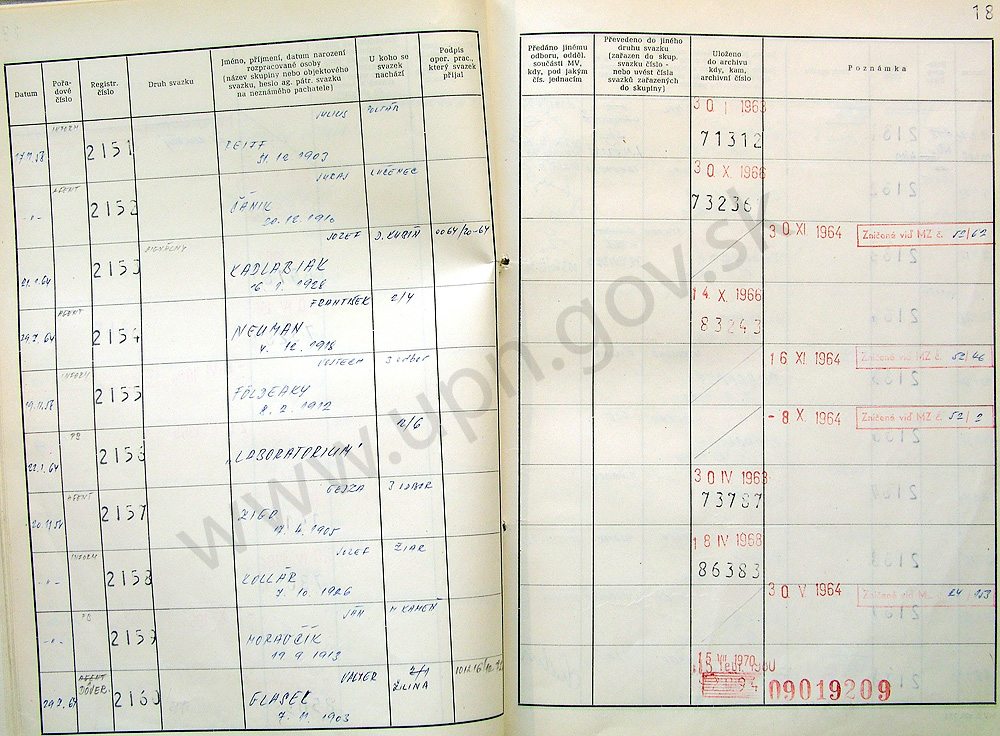 18
Datum
Pořa-
dové
číslo
Registr.
číslo
Druh svazku
Jméno, příjmení, datum narození
rozpracované osoby
(název skupiny nebo objektového
svazku, heslo ag. pátr. svazku
na neznámého pachatele)
U koho se
svazek
nachází
Podpis
oper. prac.,
který svazek
přijal
Předáno jinému
odboru, odděl.
součásti MV,
kdy, pod jakým
čís. jednacím
Převedeno do jiného
druhu svazku
(zařazen do skup.
svazku číslo -
nebo uvést čísla
svazků zařazených
do skupiny)
Uloženo
do archivu
kdy, kam,
archivní číslo
Poznámka
INFORM
JULIUS
2151
31. 12. 1903
30 I 1963
71312
AGENT
JURAJ
LUČENEC
2152
ŠÁNIK
20. 12. 1910
30. X. 1966
73236
SIGNÁLNY
JOZEF
D. KUBÍN
2153
KADLABIAK
16. 9. 1928
30 XI 1964
Zničené viď MZ č. 52/62
AGENT
FRANTIŠEK
2/4
29.2.64
2154
NEUMAN
4. 12. 1918
14. X. 1966
83243
INFORM
VOJTECH
3 ODBOR
2155
FÖLDEAKY
8. 2. 1912
16 XI 1964
Zničené viď MZ č. 52/46
PO
2/6
22.1.64
2156
„LABORATORIUM"
- 8 X 1964
Zničené viď MZ č. 52/2
AGENT
GEJZA
3 ODBOR
2157
ZIGO
4. 1905
30 IV 1963
73787
INFORM
JOZEF
ŽIAR
-"-
2158
KOLLÁR
7. 10. 1926
18 IV 1968
86383
PO
JÁN
-"-
2159
MORAVČÍK
19. 9. 1913
30 V 1964
AGENT
DÔVER.
VALTER
2/1
ŽILINA
2160
GLASEL
7. 11. 1903
15 VII 1970
09019209
www.upn.gov.sk